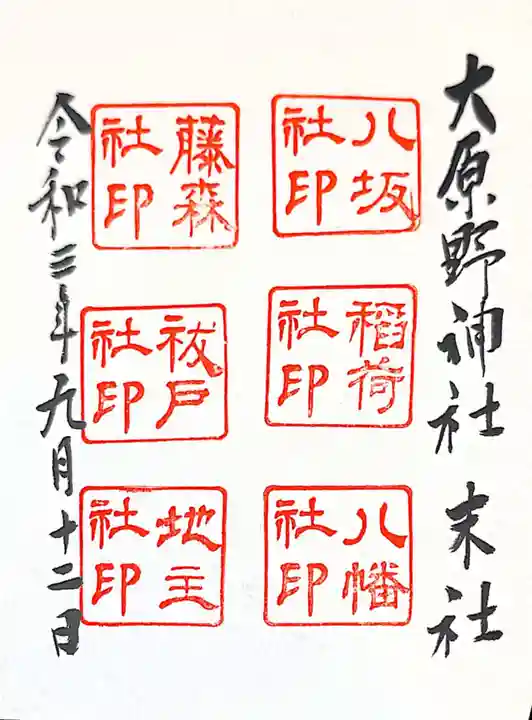 大原野神社 末社
八坂
社印
稲荷
社印
八幡
社印
藤森
社印
祓戸
社印
地主
社印
令和三年九月十二日